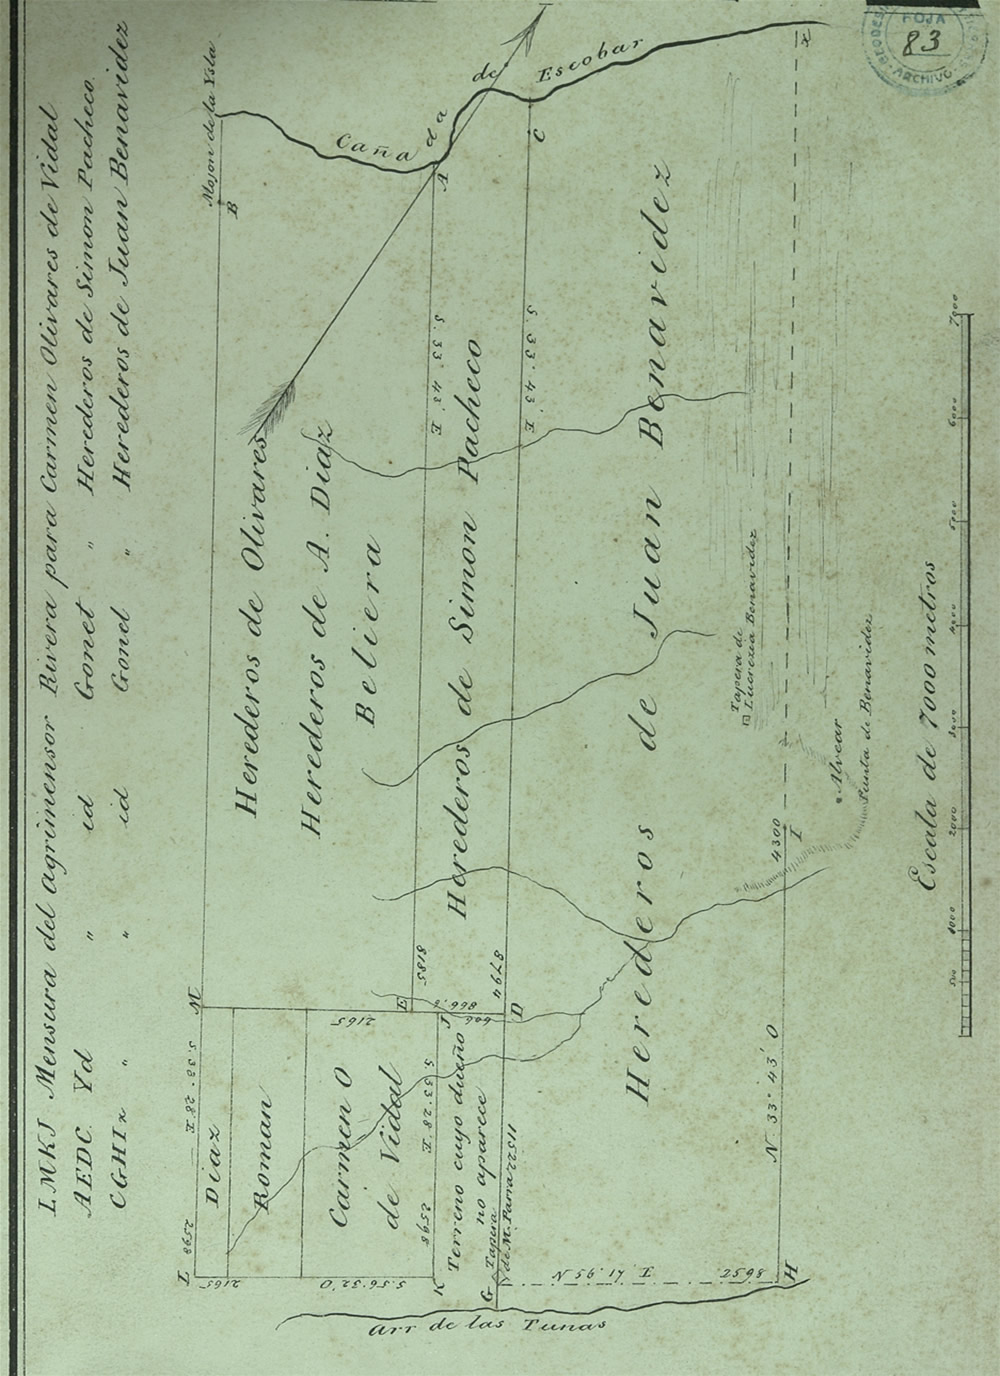 LMKJ Mensura del agrimensor Rivera para Carmen Olivares de Vidal
AEDC. Yd " id Gonet " Herederos de Simon Pacheco
CGHIx " " id Gonel " Herederos de Juan Benavidez
HOJA
83
ARCHIVO
Mojon de la Ysla
B
Cañada de Escobar
A
C
x
Herederos de Olivares
Herederos de A. Diaz
Beliera
S. 33° 43' E
Herederos de Simon Pacheco
S. 33° 43' E
Herederos de Juan Benavidez
Tapera de
Lucrezia Benavidez
Alvear
Punta de Benavidez
M
E
J
D
I
8185
8794
4300
866,6
606
2165
L
Diaz
Roman
Carmen O
de Vidal
Terreno cuyo dueño
no aparece
Tapera
de M.
11511
2598
S. 33° 28' E
2598
S. 33° 28' E
2165
S. 56. 32' O
K
G
N 56° 17' E
2568
H
N 33° 43' O
Arr de las Tunas
Escala de 7000 metros
500
1000
2000
3000
4000
5000
6000
7000